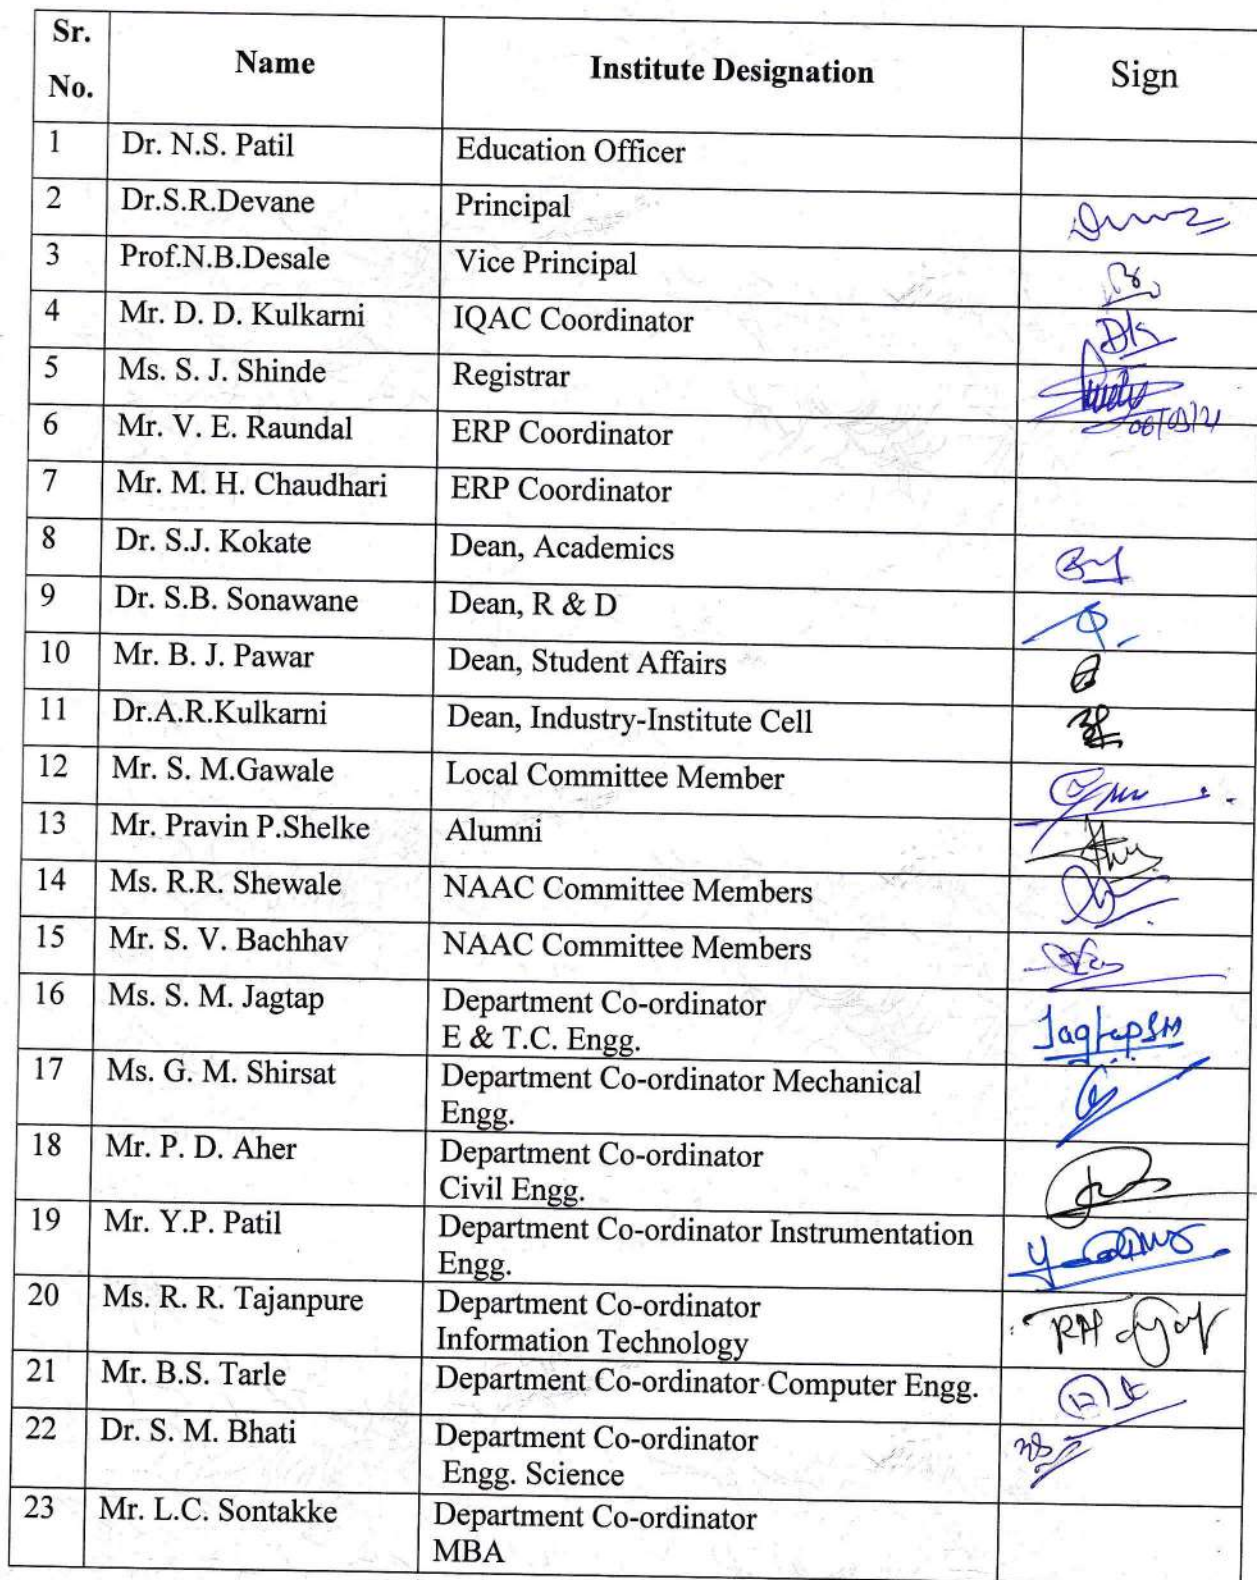 Sr. No. Name Institute Designation Sign
1 Dr. N.S. Patil Education Officer
2 Dr.S.R.Devane Principal
3 Prof.N.B.Desale Vice Principal
4 Mr. D. D. Kulkarni IQAC Coordinator
5 Ms. S. J. Shinde Registrar
6 Mr. V. E. Raundal ERP Coordinator
7 Mr. M. H. Chaudhari ERP Coordinator
8 Dr. S.J. Kokate Dean, Academics
9 Dr. S.B. Sonawane Dean, R & D
10 Mr. B. J. Pawar Dean, Student Affairs
11 Dr.A.R.Kulkarni Dean, Industry-Institute Cell
12 Mr. S. M.Gawale Local Committee Member
13 Mr. Pravin P.Shelke Alumni
14 Ms. R.R. Shewale NAAC Committee Members
15 Mr. S. V. Bachhav NAAC Committee Members
16 Ms. S. M. Jagtap Department Co-ordinator
E & T.C. Engg. JagtapSM
17 Ms. G. M. Shirsat Department Co-ordinator Mechanical
Engg.
18 Mr. P. D. Aher Department Co-ordinator
Civil Engg.
19 Mr. Y.P. Patil Department Co-ordinator Instrumentation
Engg.
20 Ms. R. R. Tajanpure Department Co-ordinator
Information Technology
21 Mr. B.S. Tarle Department Co-ordinator Computer Engg.
22 Dr. S. M. Bhati Department Co-ordinator
Engg. Science
23 Mr. L.C. Sontakke Department Co-ordinator
MBA